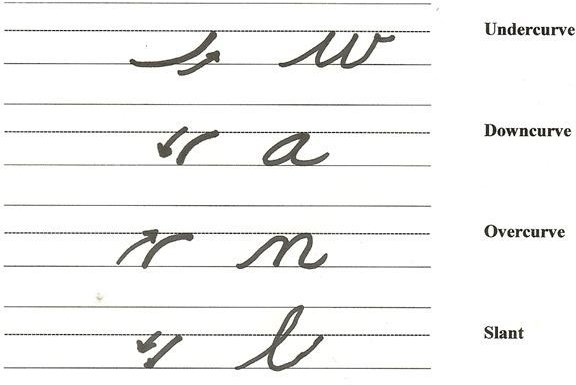 w Undercurve
a Downcurve
n Overcurve
l Slant